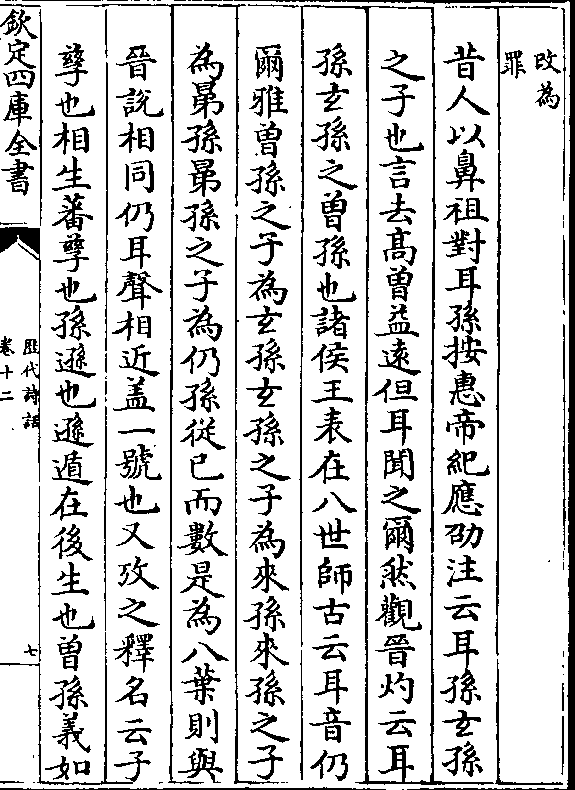 改為
罪
昔人以鼻祖對耳孫按惠帝紀應劭注云耳孫玄孫
之子也言去髙曽益逺但耳聞之爾然觀晉灼云耳
孫玄孫之曽孫也諸侯王表在八世師古云耳音仍
爾雅曽孫之子為玄孫玄孫之子為來孫來孫之子
為晜孫晜孫之子為仍孫從已而數是為八葉則與
晉説相同仍耳聲相近盖一號也又攷之釋名云子
孳也相生蕃孳也孫遜也遜遁在後生也曽孫義如
欽定四庫全書
歴代詩話
卷十二
七